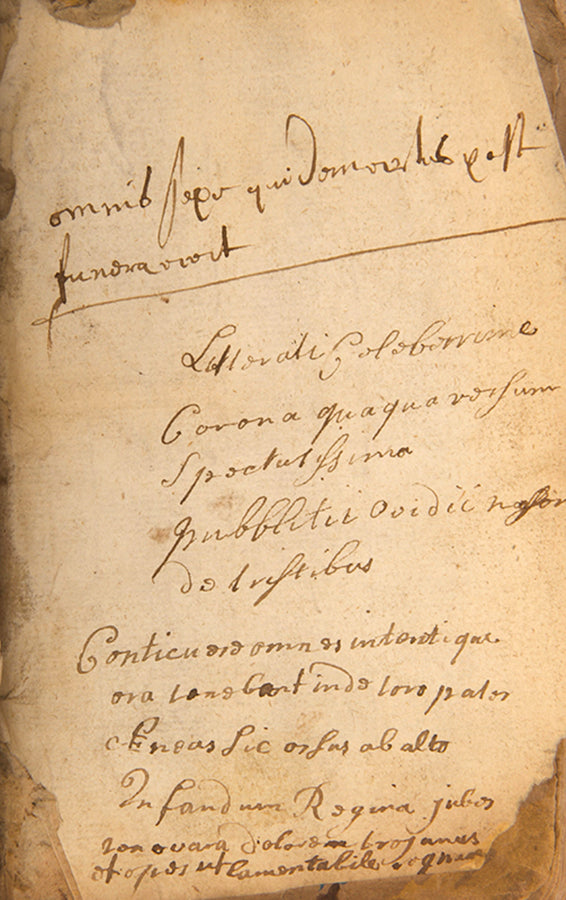 omnis sepe quidem ortus post
funera vivit
Litterati Celeberrime
Corona quaqua versum
Spectatissima
pubblitii ovidii nason
de tristibus
Conticuere omnes intentique
ora tenebant inde toro pater
Æneas sic orsus ab alto
Infandum Regina jubes
renovara dolorem trojanus
et opes ut lamentabile regnum